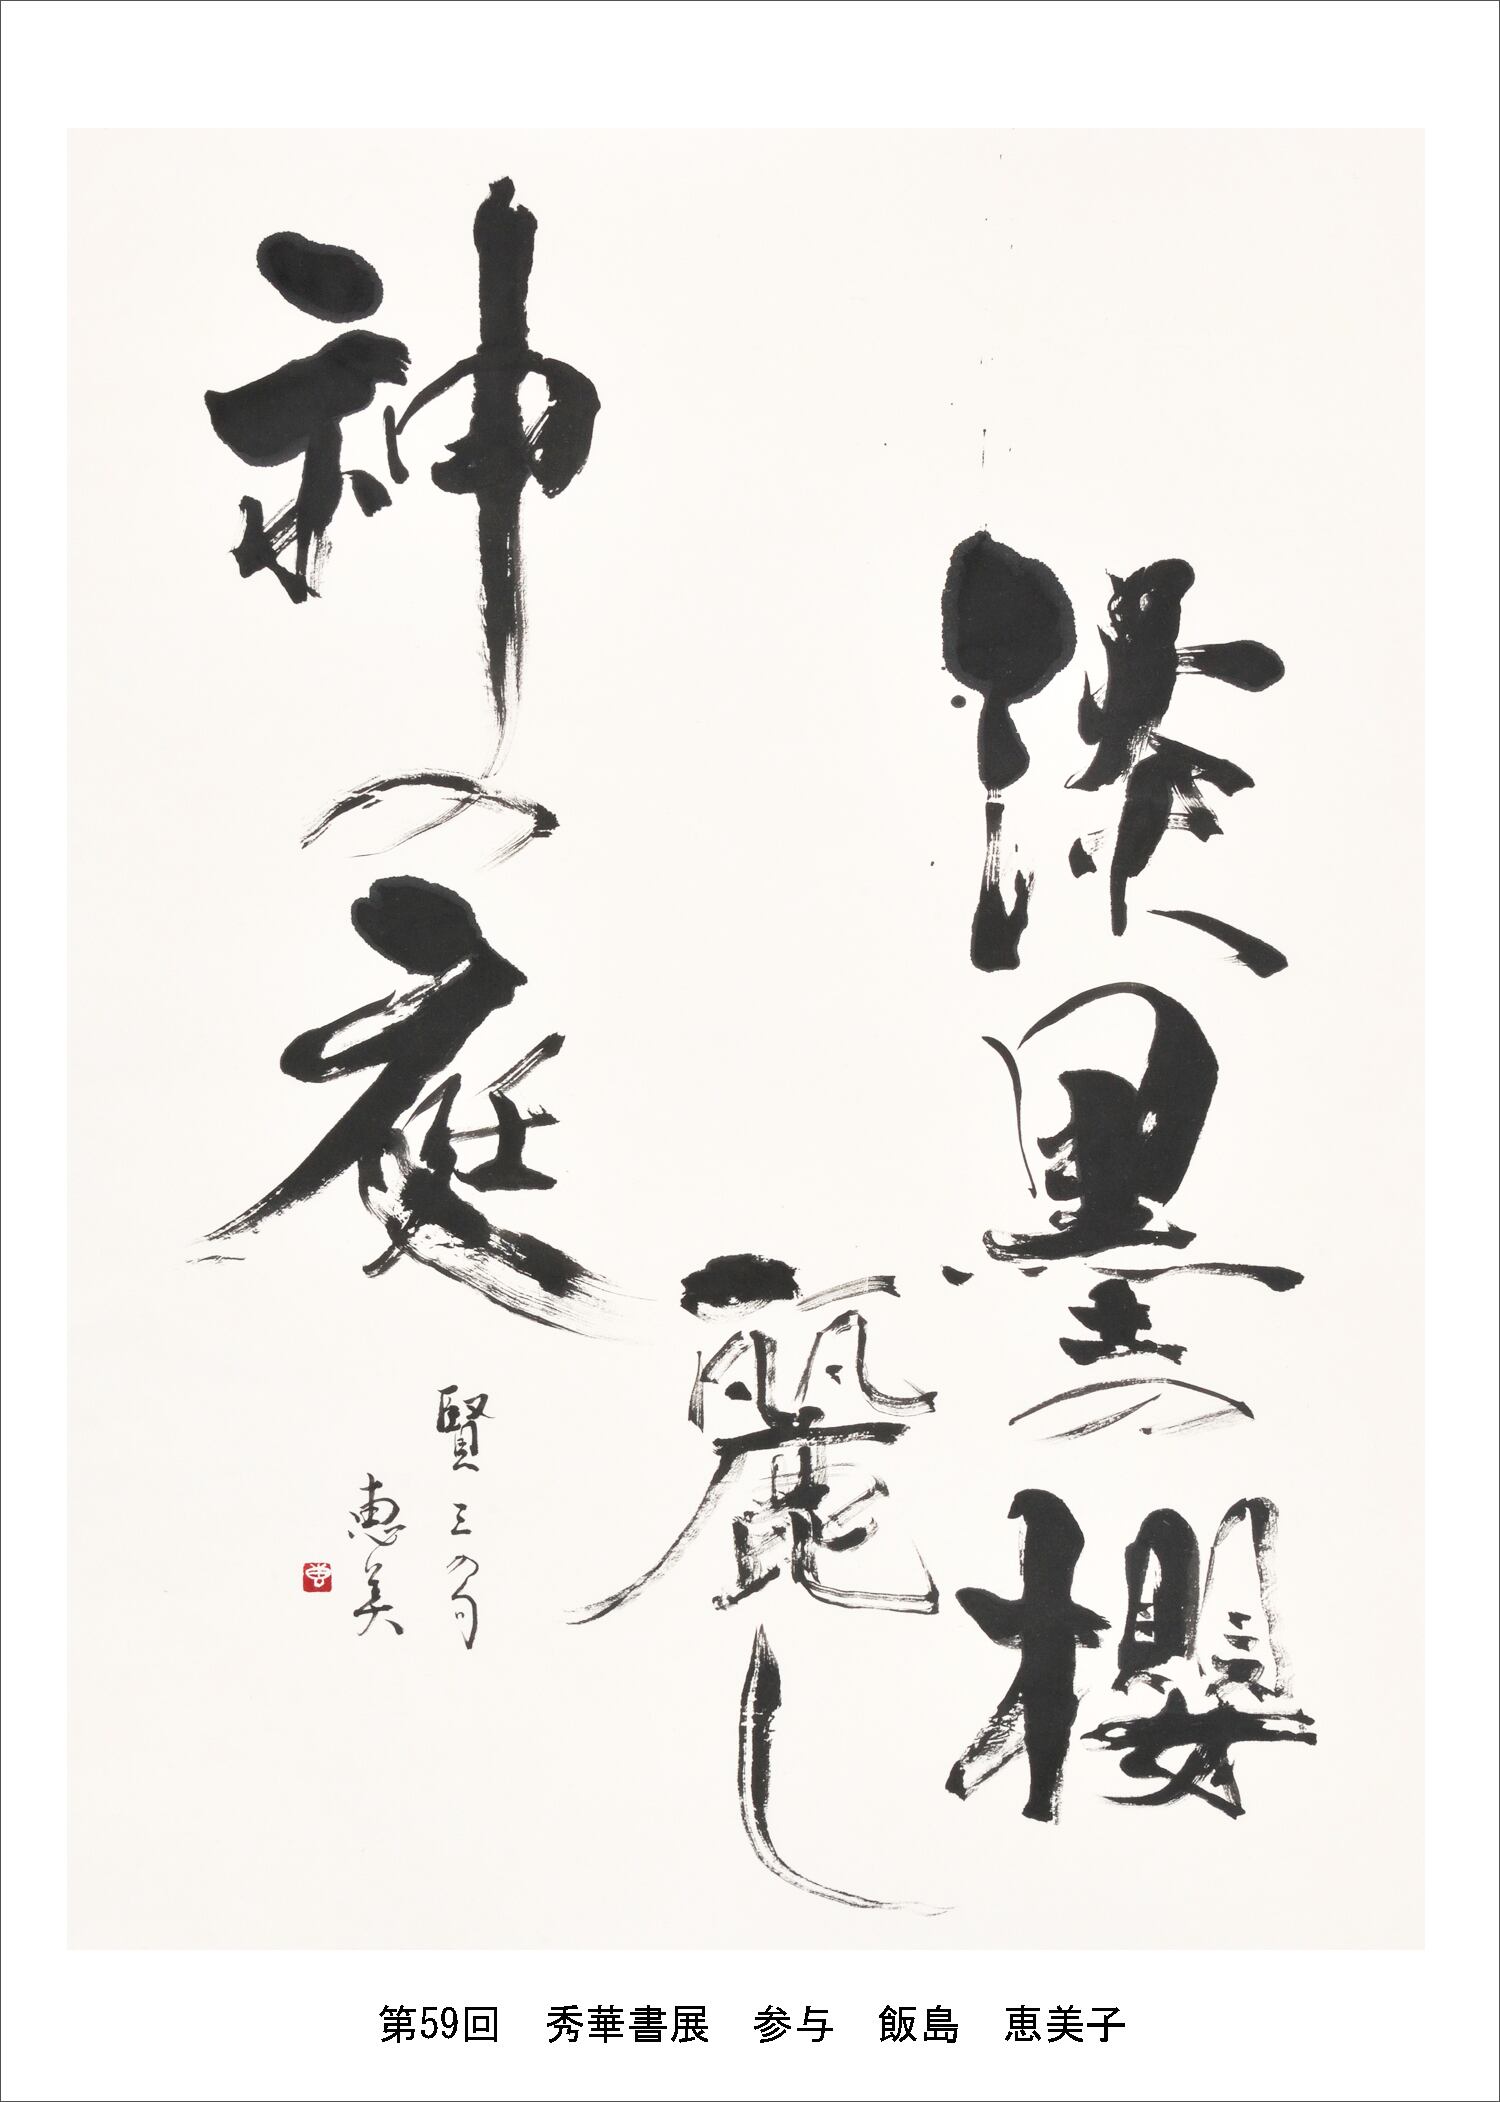 淡墨の櫻
麗し
神の庭
賢三の句
恵美
第59回 秀華書展 参与 飯島 恵美子